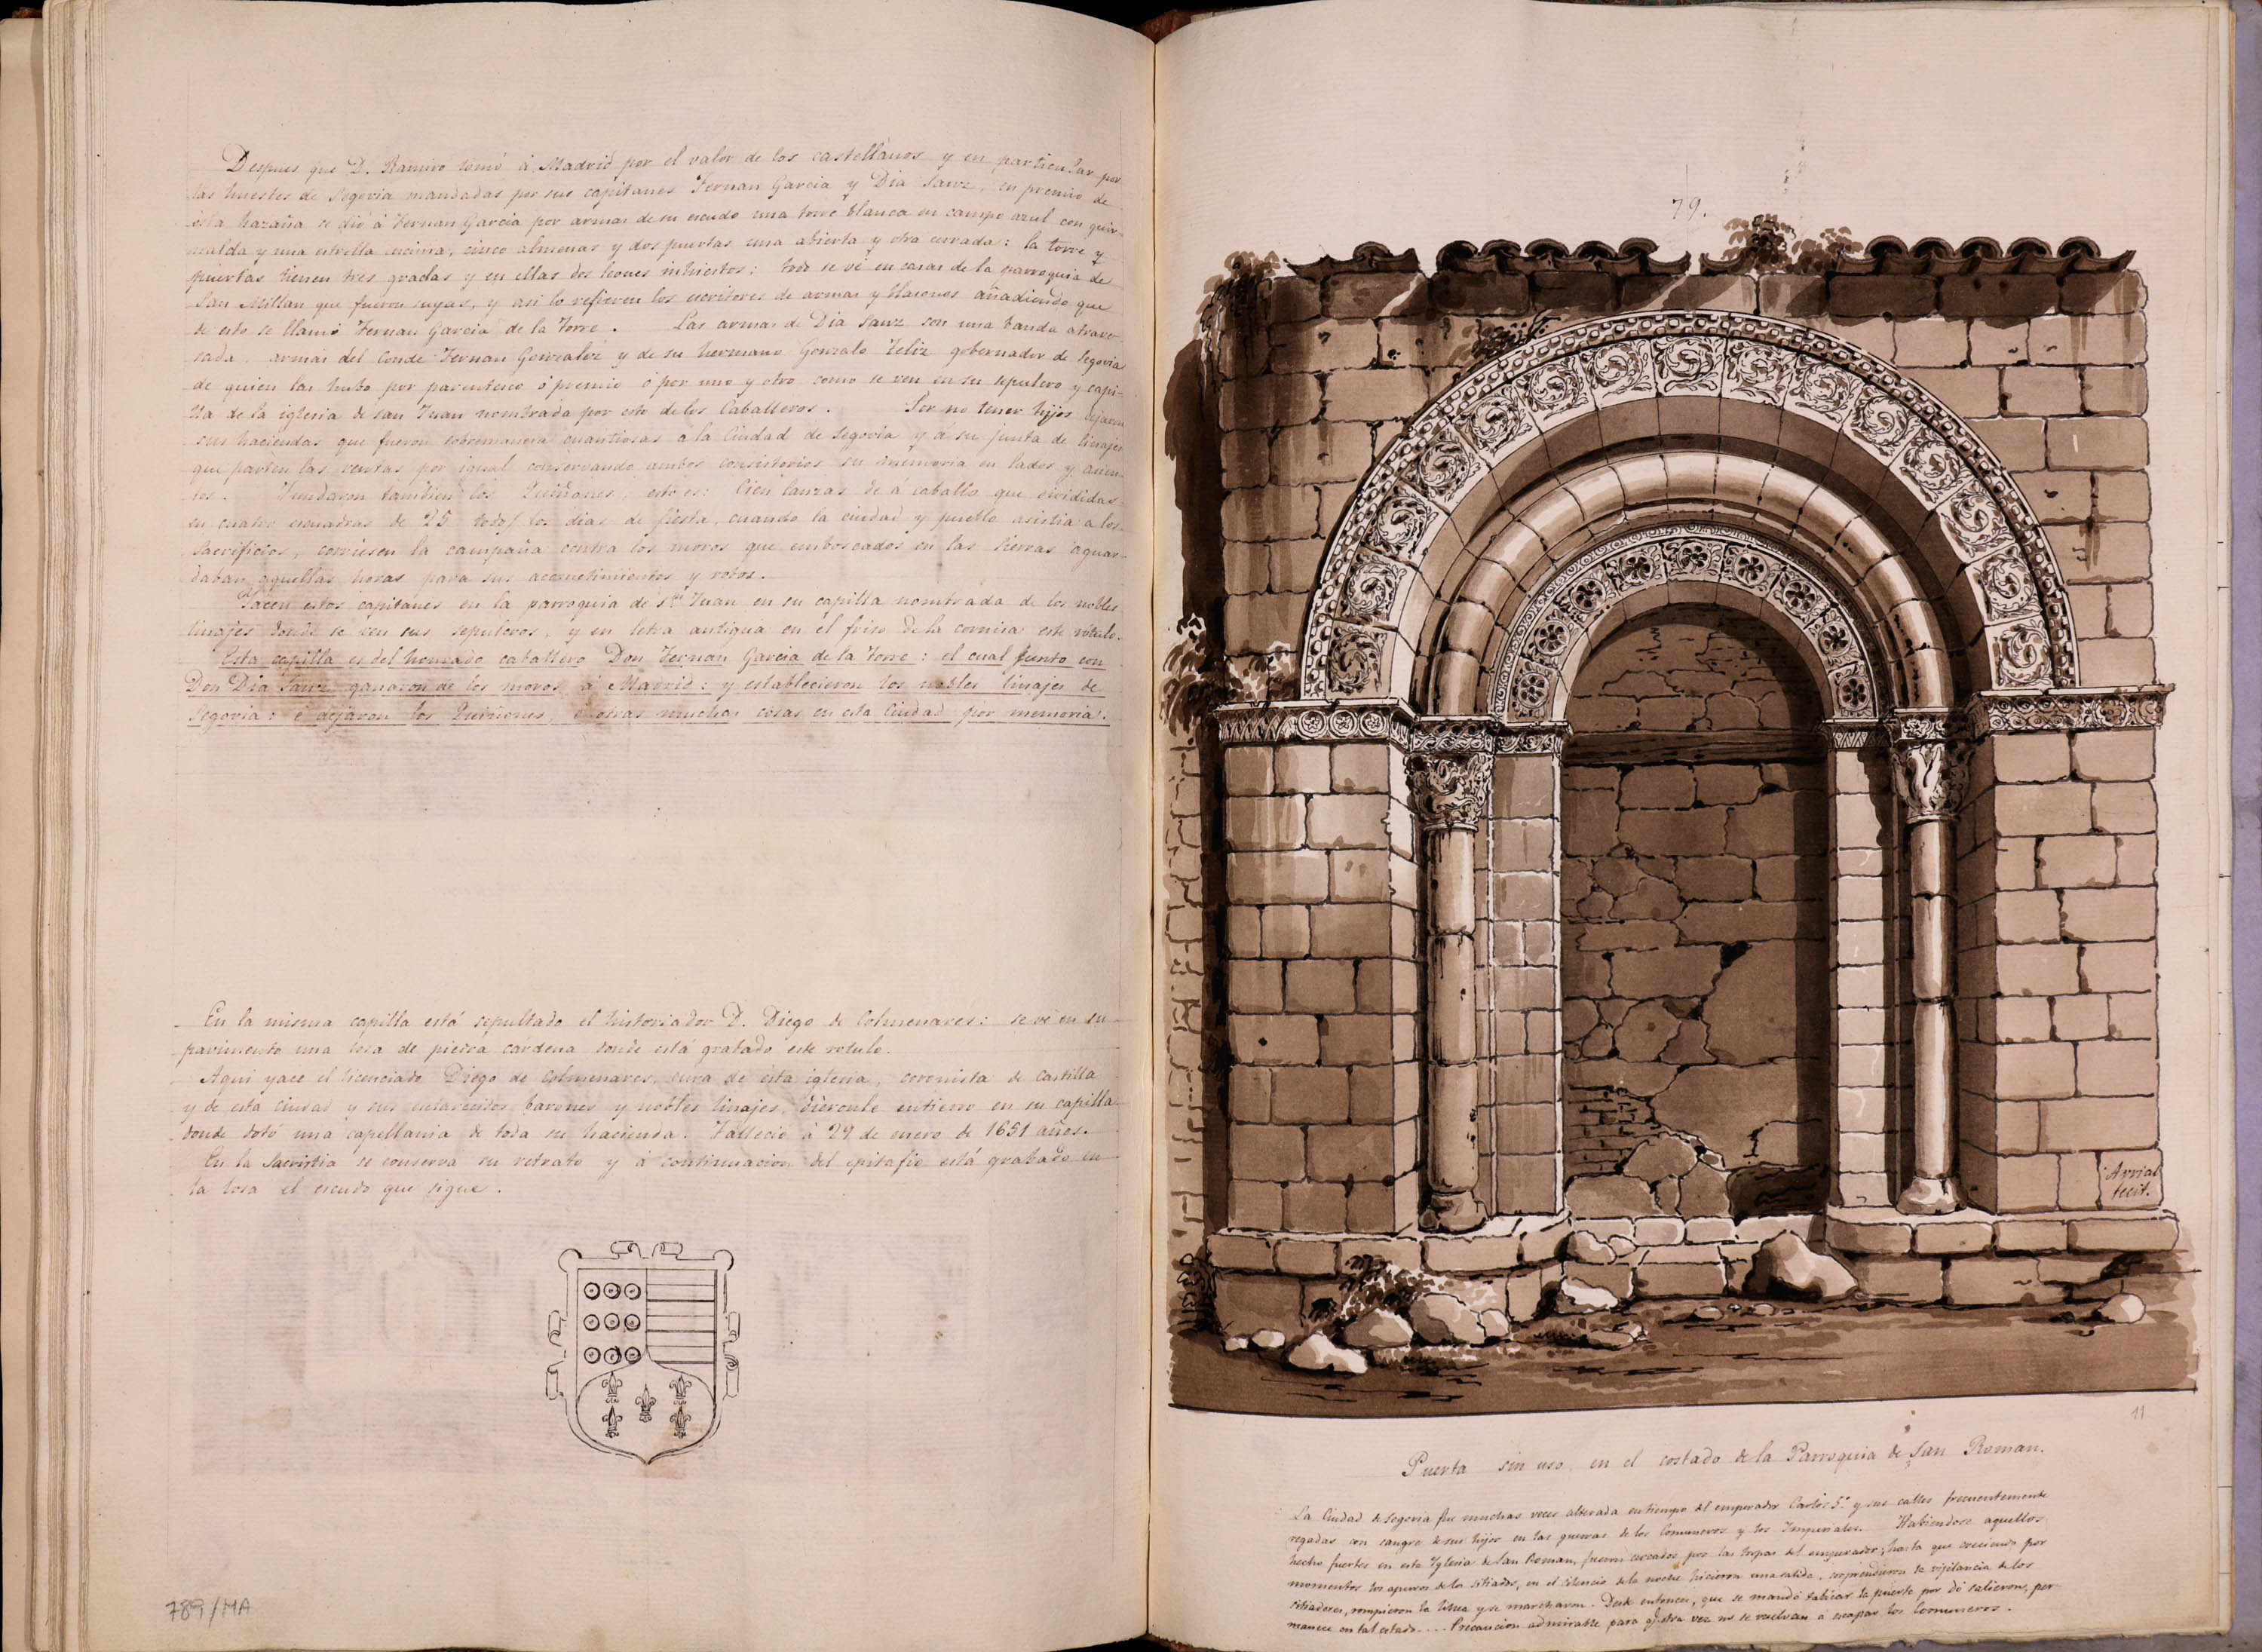 Despues que D. Ramiro tomó á Madrid por el valor de los castellanos y en particular por
las huestes de Segovia mandadas por sus capitanes Fernan Garcia y Dia Sanz, en premio de
esta hazaña se dió á Fernan Garcia por armas de su escudo una torre blanca en campo azul con guir-
nalda y una estrella encima, cinco almenas y dos puertas una abierta y otra cerrada: la torre y
puertas tienen tres gradas y en ellas dos leones inhiestos: todo se vé en casas de la parroquia de
San Millan que fueron suyas, y asi lo refieren los escritores de armas y blasones añadiendo que
de esto se llamó Fernan Garcia de la Torre. Las armas de Dia Sanz son una banda atrave-
sada, armas del Conde Fernan Gonzalez y de su hermano Gonzalo Teliz gobernador de Segovia
de quien las hubo por parentesco ó premio ó por uno y otro como se ven en su sepulcro y capi-
lla de la iglesia de San Juan nombrada por esto de los Caballeros. Por no tener hijos dejaron
sus haciendas que fueron sobremanera cuantiosas a la Ciudad de Segovia y á su junta de linajes
que parten las rentas por igual conservando ambos consistorios su memoria en lados y asien-
tos. Fundaron tambien los Quiñones, esto es: Cien lanzas de á caballo que divididas
en cuatro escuadras de 25 todos los dias de fiesta, cuando la ciudad y pueblo asistia a los
sacrificios, corriesen la campaña contra los moros que emboscados en las sierras aguar-
daban aquellas horas para sus acometimientos y robos.
Yacen estos capitanes en la parroquia de Sn. Juan en su capilla nombrada de los nobles
linajes donde se ven sus sepulcros, y en letra antigua en el friso de la cornisa este rótulo.
Esta capilla es del honrado caballero Don Fernan Garcia de la Torre: el cual junto con
Don Dia Sanz ganaron de los moros á Madrid: y establecieron los nobles linajes de
Segovia: é dejaron los Quiñones, é otras muchas cosas en esta Ciudad por memoria.
En la misma capilla está sepultado el historiador D. Diego de Colmenares: se vé en su
pavimento una losa de piedra cárdena donde está grabado este rotulo.
Aqui yace el licenciado Diego de Colmenares, cura de esta iglesia, coronista de Castilla
y de esta ciudad y sus esclarecidos barones y nobles linajes, diéronle entierro en su capilla
donde dotó una capellania de toda su hacienda. Falleció á 29 de enero de 1651 años.
En la Sacristia se conserva su retrato y á continuacion del epitafio está grabado en
la losa el escudo que sigue.
789/MA
79.
Arrial
fecit.
11
Puerta sin uso, en el costado de la Parroquia de San Roman.
La Ciudad de Segovia fue muchas veces alterada en tiempo del emperador Carlos 5.º y sus calles frecuentemente
regadas con sangre de sus hijos en las guerras de los Comuneros y los Imperiales. Habiendose aquellos
hecho fuertes en esta Yglesia de San Roman, fueron cercados por las tropas del emperador; hasta que creciendo por
momentos los apuros de los sitiados, en el silencio de la noche hicieron una salida, sorprendieron la vigilancia de los
sitiadores, rompieron la linea y se marcharon. Desde entonces, que se mandó tabicar la puerta por dó salieron, per-
manece en tal estado.... Precaucion admirable para q.e otra vez no se vuelvan á escapar los Comuneros.